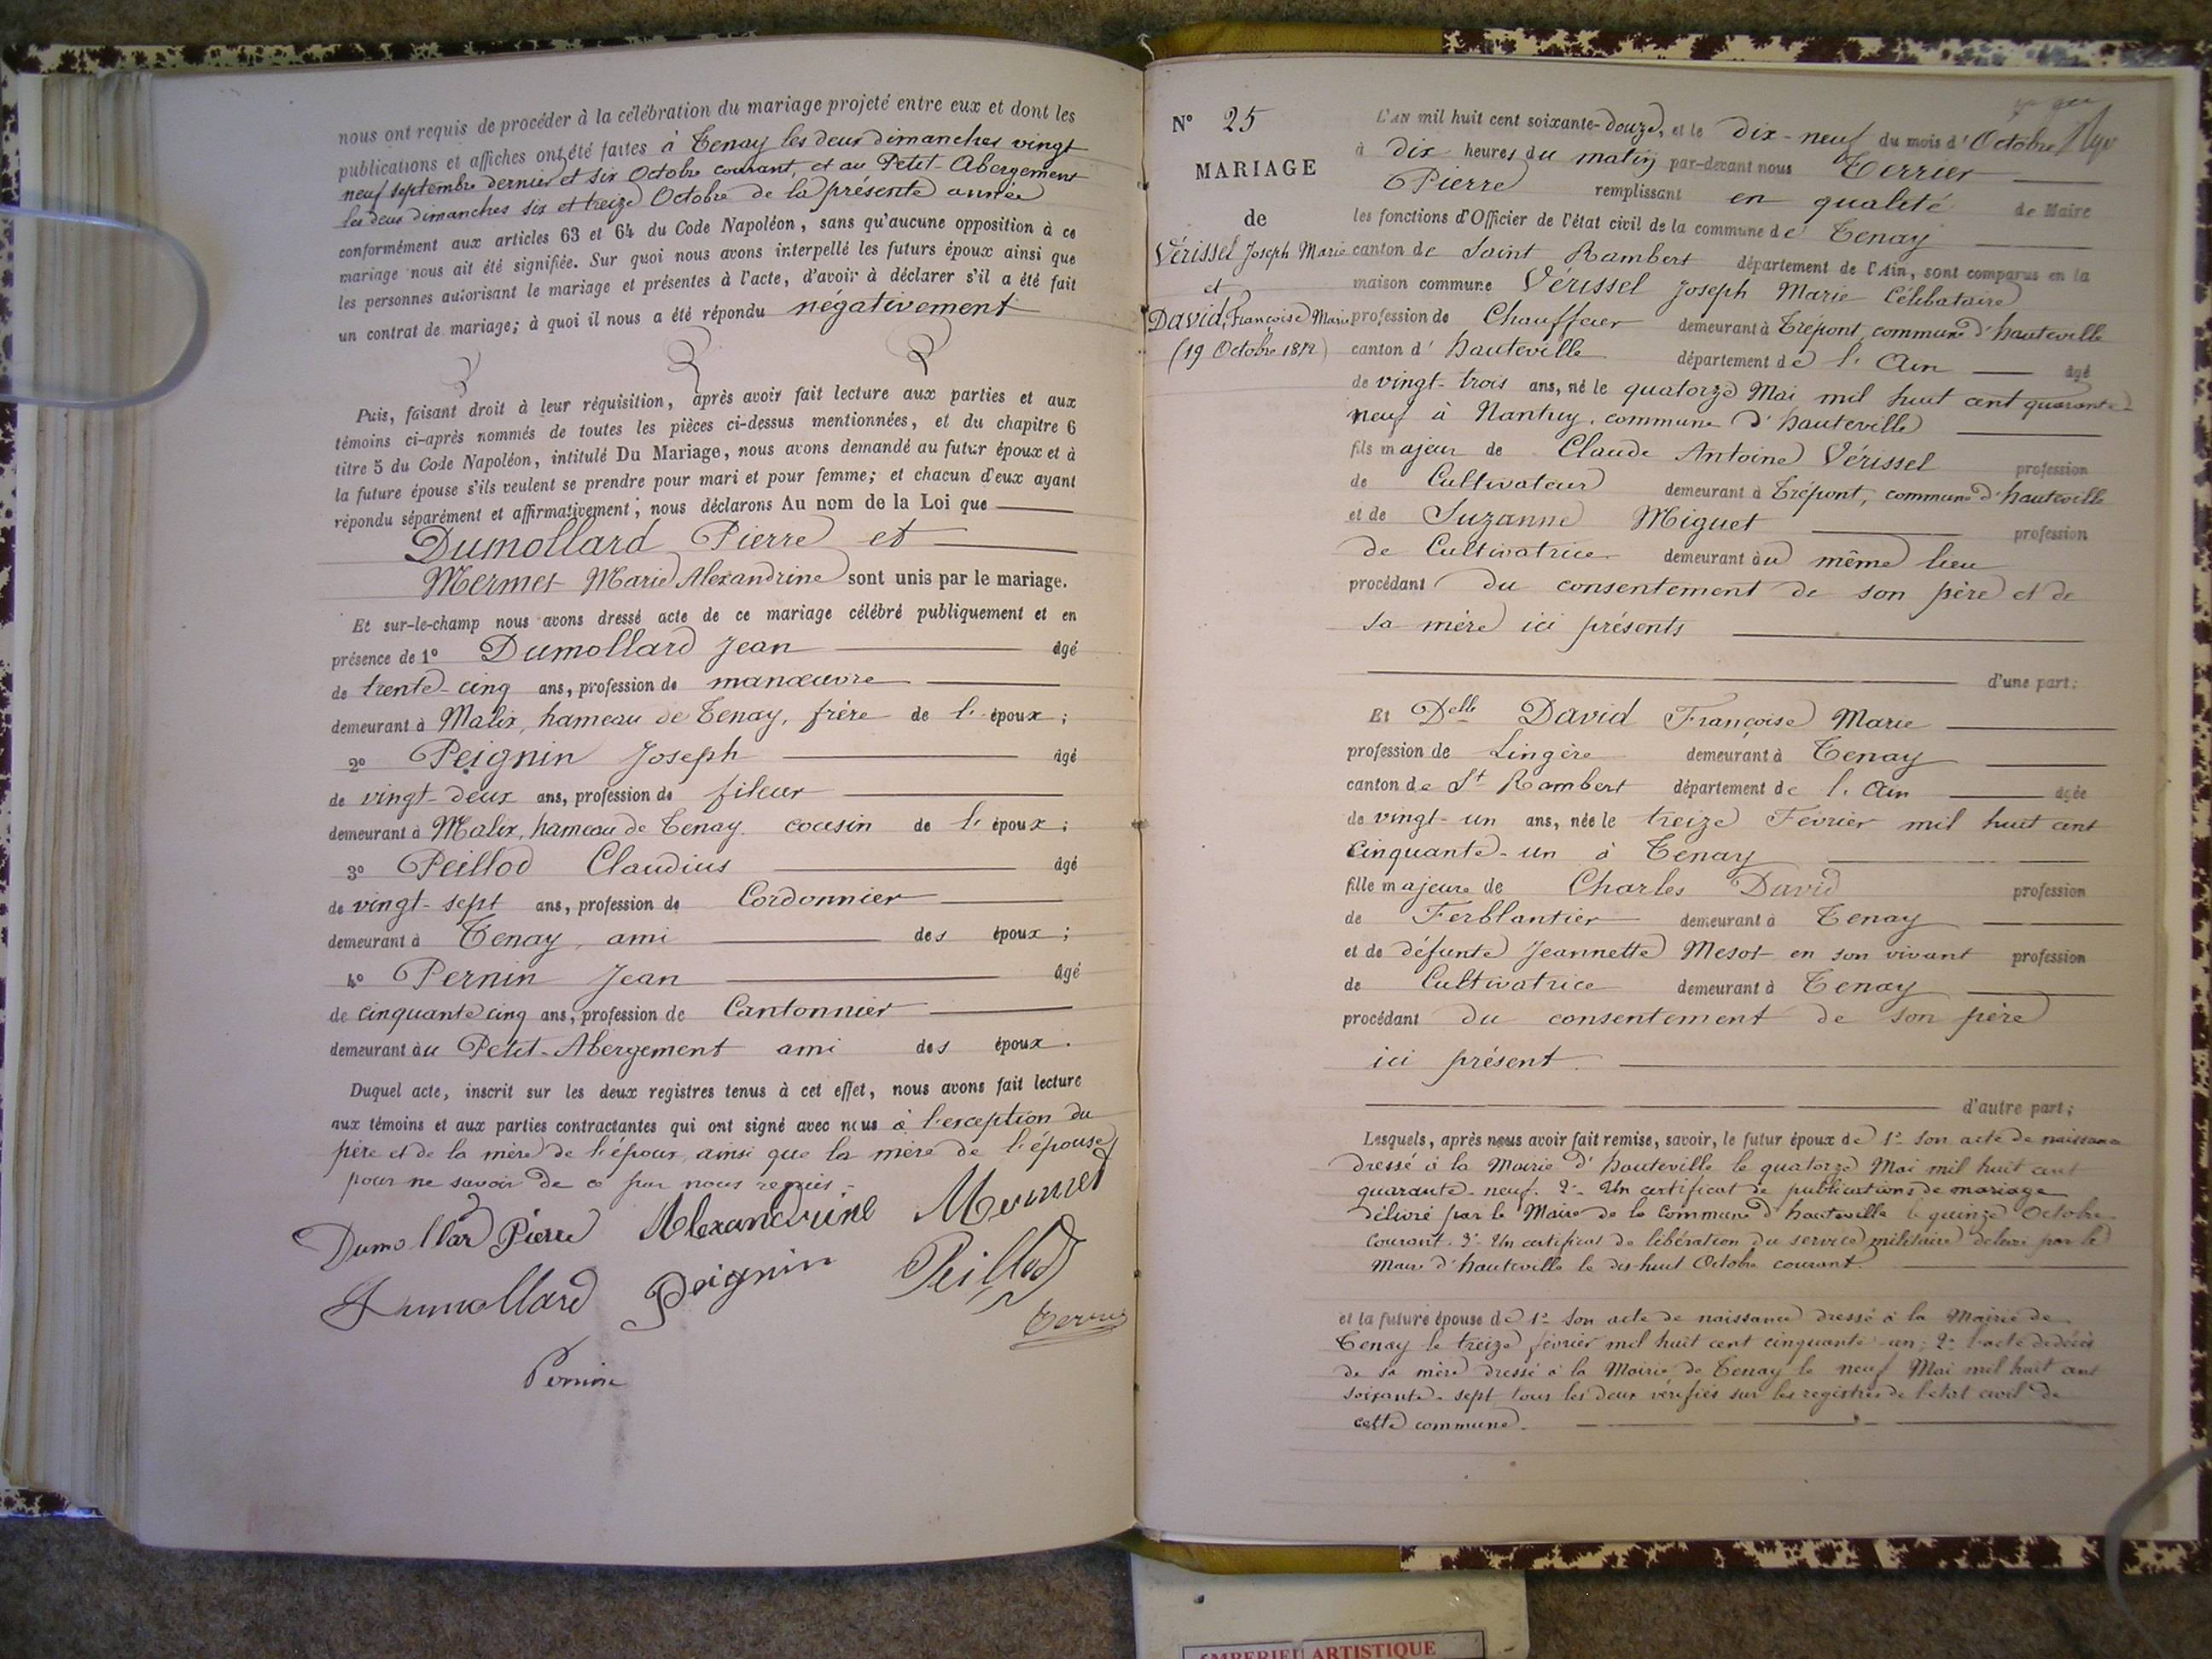 nous ont requis de procéder à la célébration du mariage projeté entre eux et dont les
publications et affiches ont été faites à Tenay les deux dimanches vingt
neuf septembre dernier et six Octobre courant, et au Petit-Abergement
les deux dimanches six et treize Octobre de la présente année
conformément aux articles 63 et 64 du Code Napoléon, sans qu'aucune opposition à ce
mariage nous ait été signifiée. Sur quoi nous avons interpellé les futurs époux ainsi que
les personnes autorisant le mariage et présentes à l'acte, d'avoir à déclarer s'il a été fait
un contrat de mariage; à quoi il nous a été répondu négativement
Puis, faisant droit à leur réquisition, après avoir fait lecture aux parties et aux
témoins ci-après nommés de toutes les pièces ci-dessus mentionnées, et du chapitre 6
titre 5 du Code Napoléon, intitulé Du Mariage, nous avons demandé au futur époux et à
la future épouse s'ils veulent se prendre pour mari et pour femme; et chacun d'eux ayant
répondu séparément et affirmativement; nous déclarons Au nom de la Loi que
Dumollard Pierre et
Mermet Marie Alexandrine sont unis par le mariage.
Et sur-le-champ nous avons dressé acte de ce mariage célébré publiquement et en
présence de 1° Dumollard Jean âgé
de trente-cinq ans, profession de manœuvre
demeurant à Malix, hameau de Tenay, frère de l'époux;
2° Peignin Joseph âgé
de vingt-deux ans, profession de fileur
demeurant à Malix, hameau de Tenay. cousin de l'époux;
3° Peillod Claudius âgé
de vingt-sept ans, profession de Cordonnier
demeurant à Tenay, ami des époux;
4° Pernin Jean âgé
de cinquante cinq ans, profession de Cantonnier
demeurant au Petit-Abergement ami des époux.
Duquel acte, inscrit sur les deux registres tenus à cet effet, nous avons fait lecture
aux témoins et aux parties contractantes qui ont signé avec nous à l'exception du
père et de la mère de l'époux, ainsi que la mère de l'épouse
pour ne savoir de ce par nous requis.
Dumollar Pierre Alexandrine Mermet
Dumollard Peignin Peillod
Pernin
N° 25
MARIAGE
de
Vérissel Joseph Marie
et
David, Françoise Marie
(19 Octobre 1872)
L'AN mil huit cent soixante-douze, et le dix-neuf du mois d'Octobre
à dix heures du matin par-devant nous Terrier
Pierre remplissant en qualité de Maire
les fonctions d'Officier de l'état civil de la commune de Tenay
canton de Saint Rambert département de l'Ain, sont comparus en la
maison commune Vérissel Joseph Marie Célibataire
profession de Chauffeur demeurant à Trépont, commune d'hauteville
canton d'hauteville département de l'Ain âgé
de vingt-trois ans, né le quatorze Mai mil huit cent quarante-
neuf à Nantuy, commune d'hauteville
fils majeur de Claude Antoine Vérissel profession
de Cultivateur demeurant à Trépont, commune d'hauteville
et de Suzanne Miguet profession
de Cultivatrice demeurant au même lieu
procédant du consentement de son père et de
sa mère ici présents
d'une part;
Et Delle David Françoise Marie
profession de Lingère demeurant à Tenay
canton de St Rambert département de l'Ain âgée
de vingt-un ans, née le treize Février mil huit cent
cinquante-un à Tenay
fille majeure de Charles David profession
de Ferblantier demeurant à Tenay
et de défunte Jeannette Mesot en son vivant profession
de Cultivatrice demeurant à Tenay
procédant du consentement de son père
ici présent.
d'autre part;
Lesquels, après nous avoir fait remise, savoir, le futur époux de 1° Son acte de naissance
dressé à la Mairie d'hauteville le quatorze Mai mil huit cent
quarante-neuf. 2° Un certificat de publications de mariage
délivré par le Maire de la Commune d'hauteville le quinze Octobre
courant. 3° Un certificat de libération du service militaire délivré par le
Maire d'hauteville le dix-huit Octobre courant.
et la future épouse de 1° Son acte de naissance dressé à la Mairie de
Tenay le treize février mil huit cent cinquante-un; 2° l'acte de décès
de sa mère dressé à la Mairie de Tenay le neuf Mai mil huit cent
soixante-sept tous les deux vérifiés sur les registres de l'état civil de
cette commune.
ARTISTIQUE